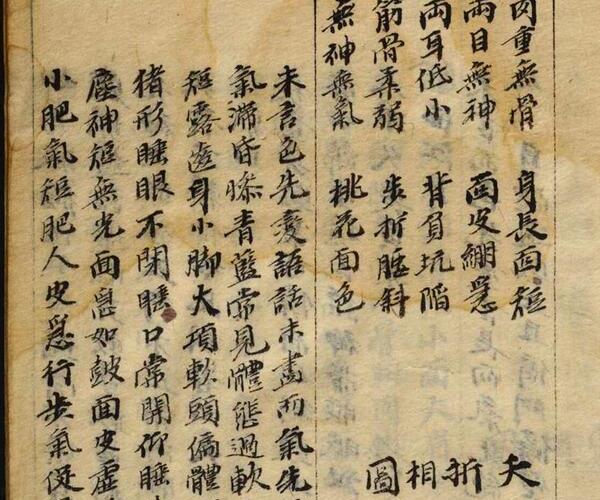 肉重無骨 身長面短
兩目無神 面皮綳急
兩耳低小 背負坑陷
筋骨柔弱 步折腰斜
無神無氣 桃花面色
夭折相圖
未言色先變語話未盡而氣先
氣滯昏慘青藍常見體態過軟
短露齒身小脚大項軟頭偏體
猪形睡眼不閉睡口常開仰睡
塵神短無光面急如皷面皮虛
小肥氣短肥人皮急行步氣促